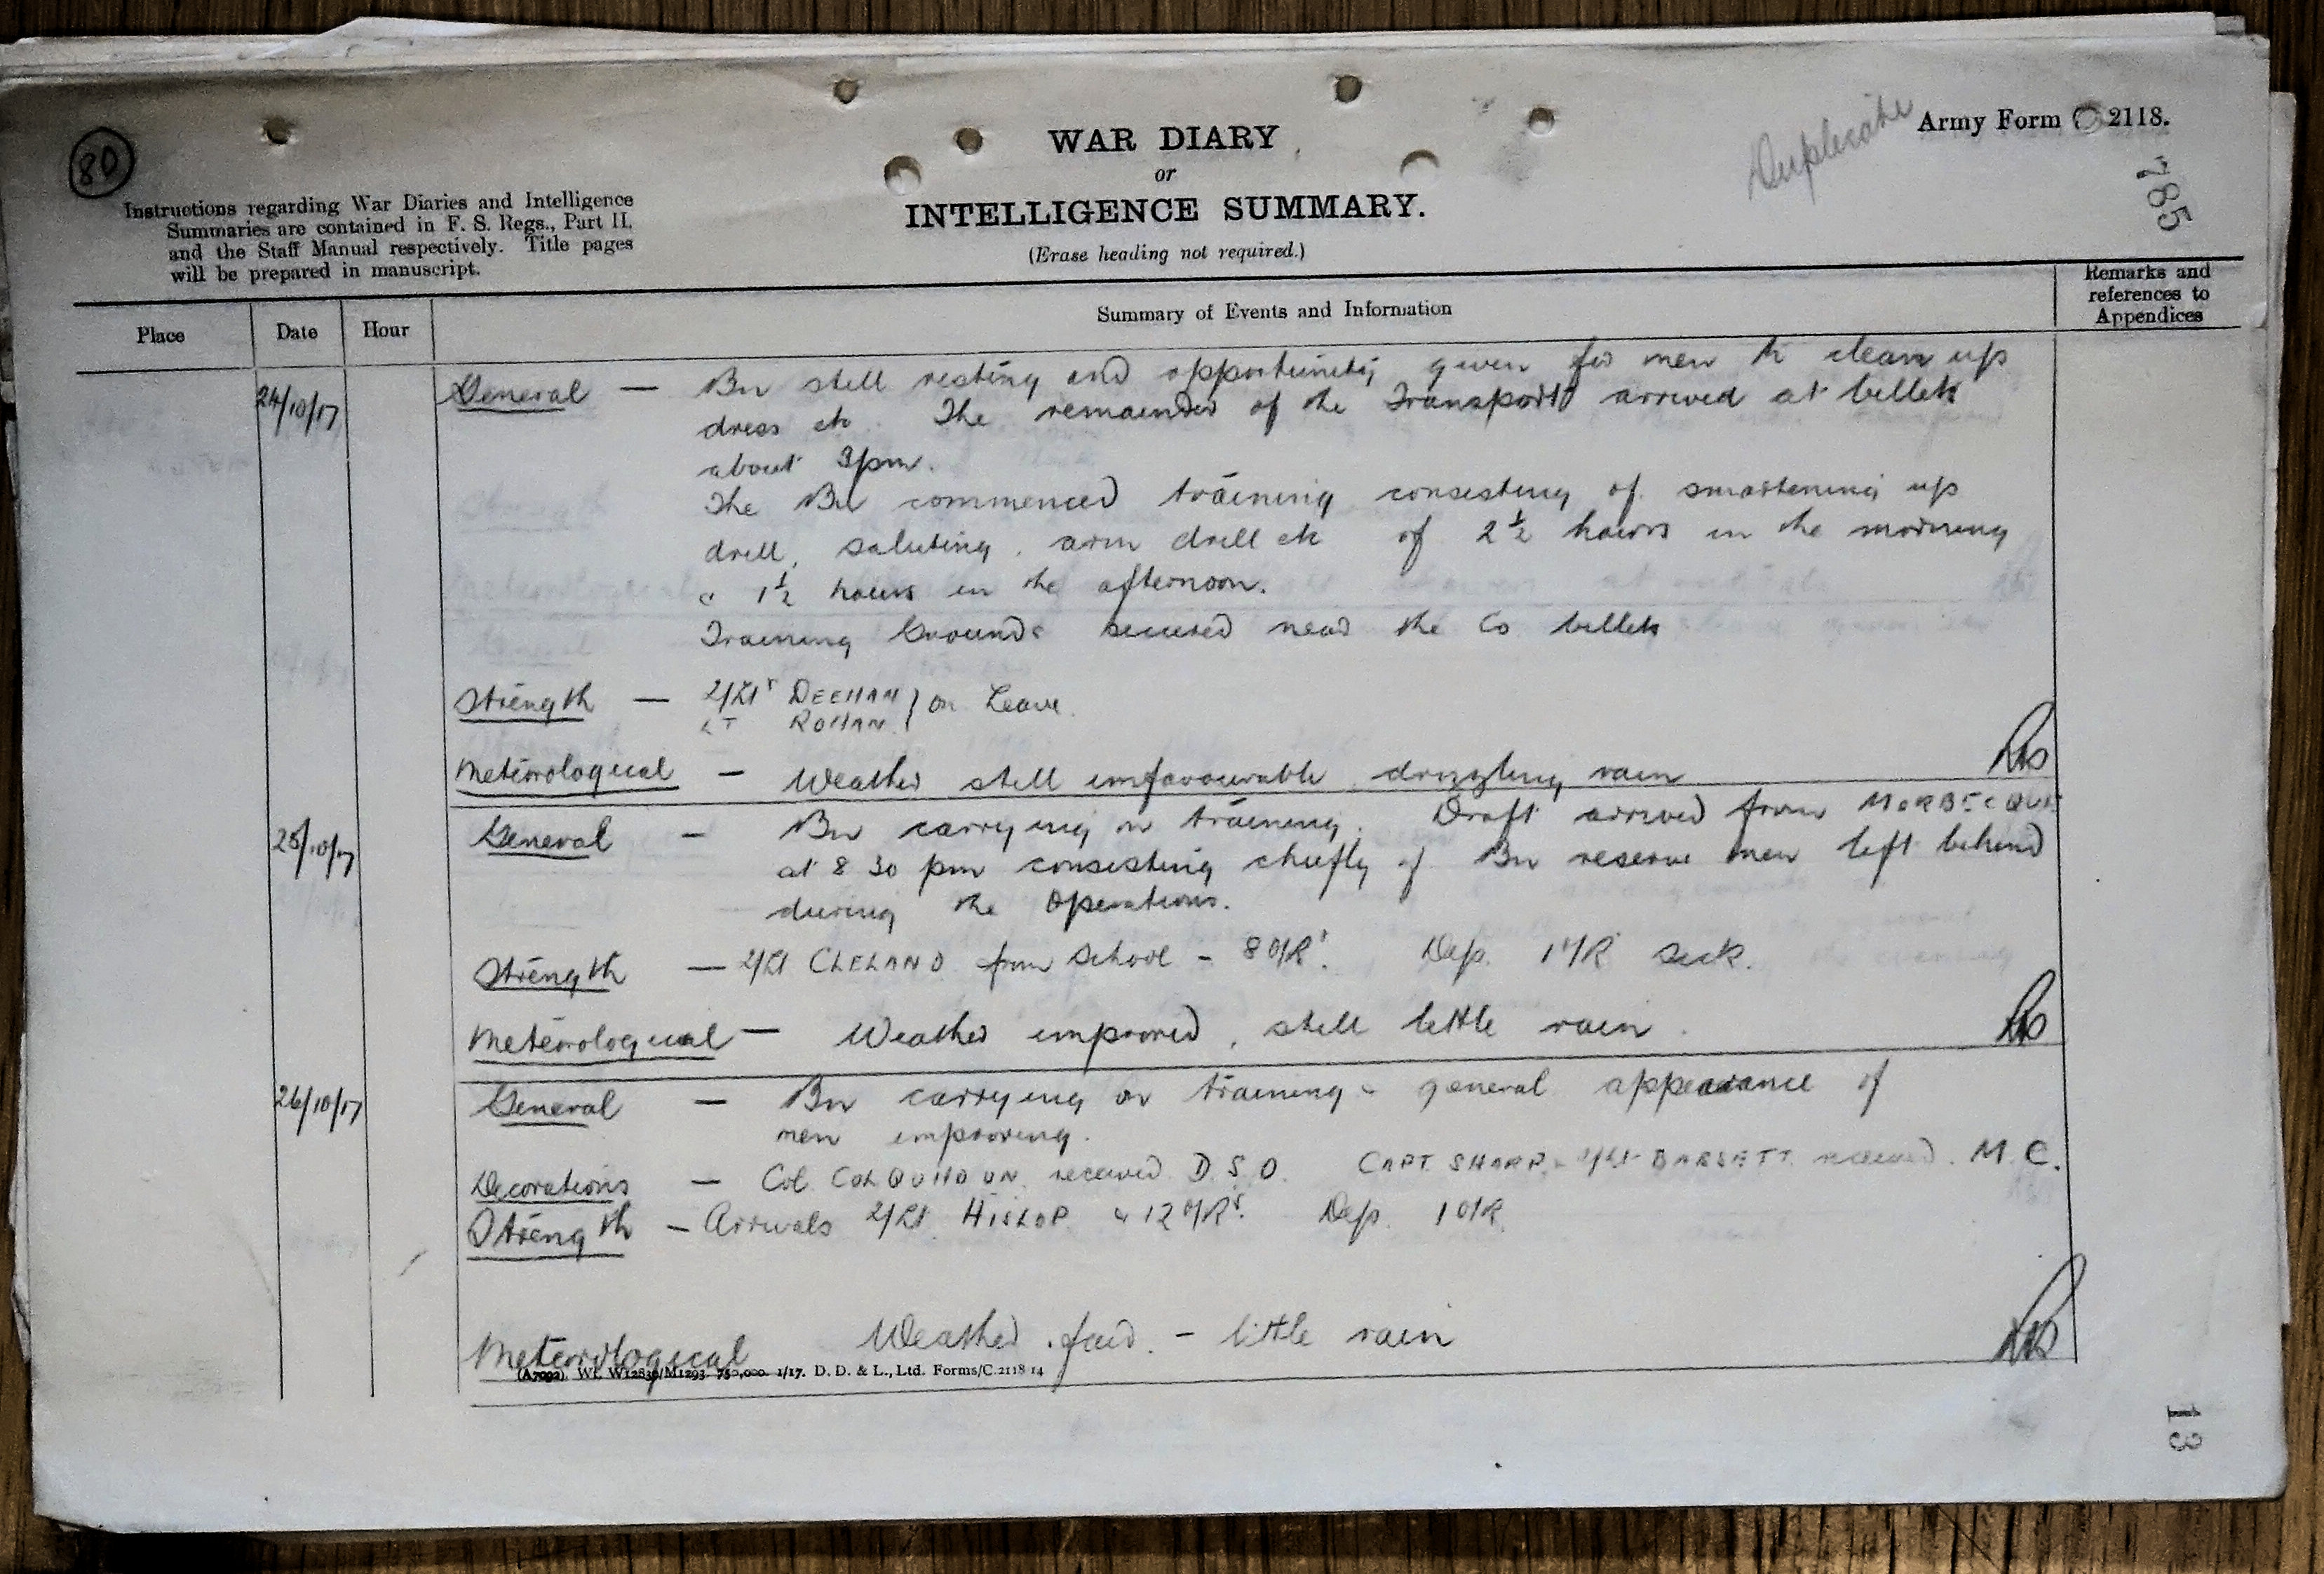 80
Duplicate
Army Form C 2118.
785
WAR DIARY
or
INTELLIGENCE SUMMARY.
(Erase heading not required.)
Instructions regarding War Diaries and Intelligence
Summaries are contained in F. S. Regs., Part II.
and the Staff Manual respectively. Title pages
will be prepared in manuscript.
Place Date Hour Summary of Events and Information Remarks and references to Appendices
24/10/17 General — Bn still resting and opportunity given for men to clean up
dress etc. The remainder of the Transport arrived at billets
about 3pm.
The Bn commenced training consisting of smartening up
drill, saluting, arm drill etc of 2½ hours in the morning
& 1½ hours in the afternoon.
Training Grounds secured near the Co billets
Strength — 2/Lt DEEHAN } on Leave
LT ROHAN
Meteorological — Weather still unfavourable drizzling rain
25/10/17 General — Bn carrying on training. Draft arrived from MORBECQUE
at 8 30 pm consisting chiefly of Bn reserve men left behind
during the Operations.
Strength — 2/Lt CLELAND from School - 8 O/Rs. Dep. 1 O/R sick.
Meteorological — Weather improved, still little rain.
26/10/17 General — Bn carrying on training & general appearance of
men improving.
Decorations — Col. COLQUHOUN received D.S.O. CAPT. SHARP & 2/Lt received M.C.
Strength — Arrivals 2/Lt. HISLOP & 12 O/Rs. Dep. 1 O/R.
Meteorological Weather fair - little rain
(A7092). Wt. W12839/M1293. 750,000. 1/17. D. D. & L., Ltd. Forms/C.2118/14
13